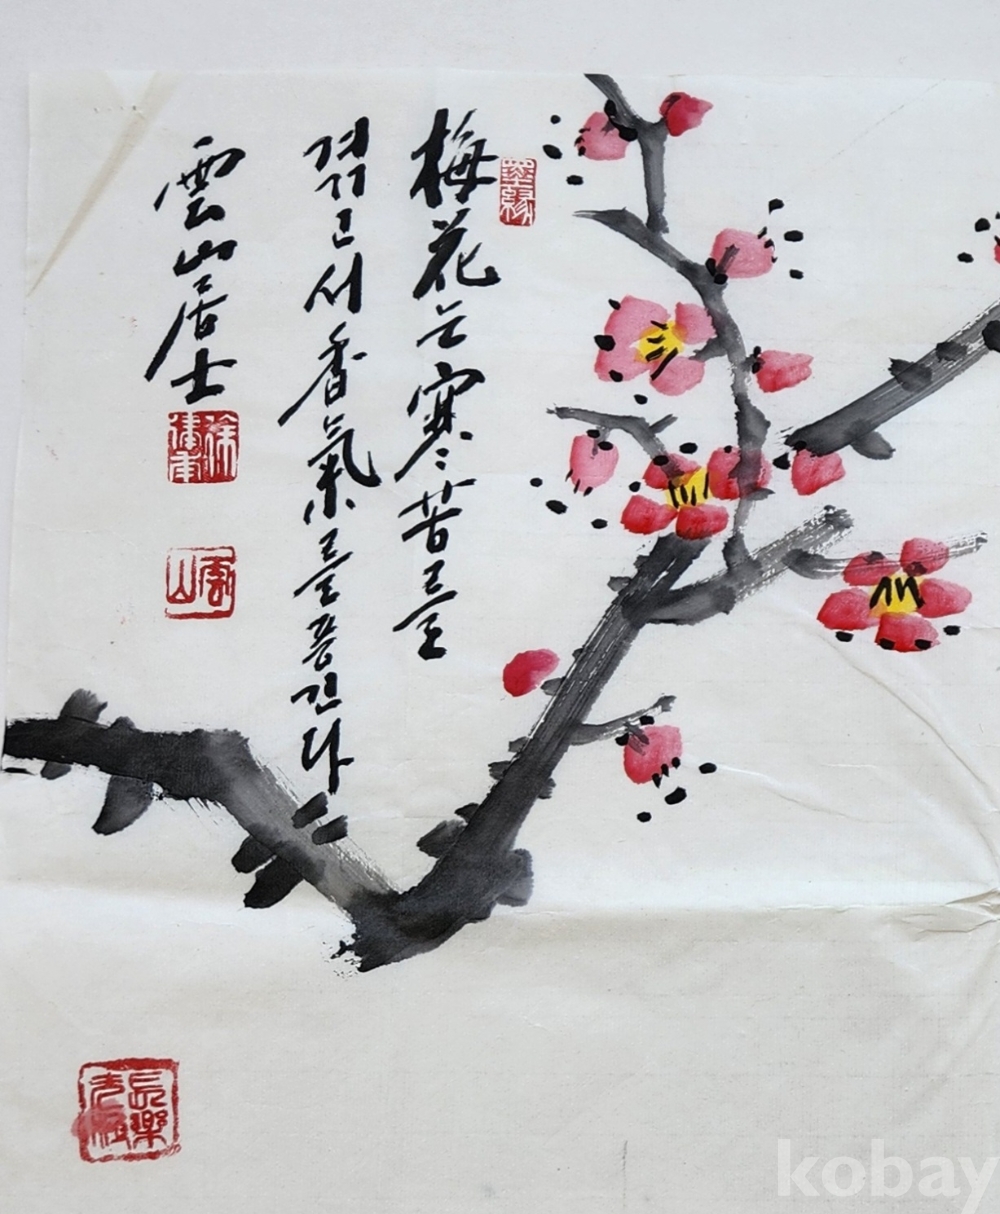 梅花는寒苦를
겪고서香氣를풍긴다
雲山居士
墨緣
長樂
kobay